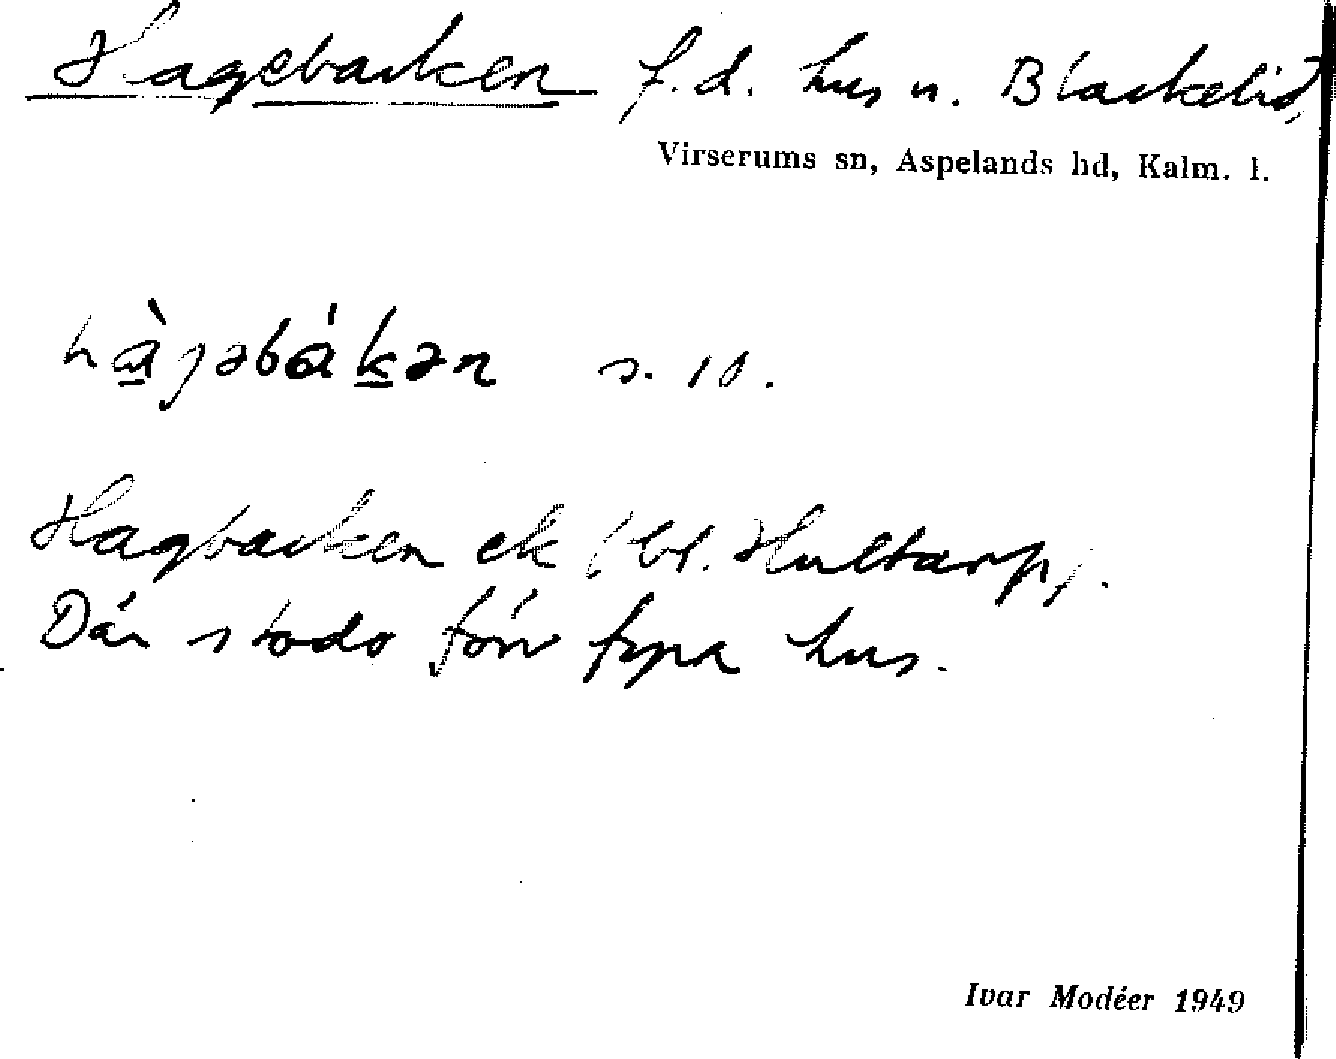 Hagebacken f.d. hus u. Blackelid,
Virserums sn, Aspelands hd, Kalm. l.
hàgəbákən s. 10.
Hagbacken ek (bl. Hultarp).
Där stodo förr fyra hus.
Ivar Modéer 1949